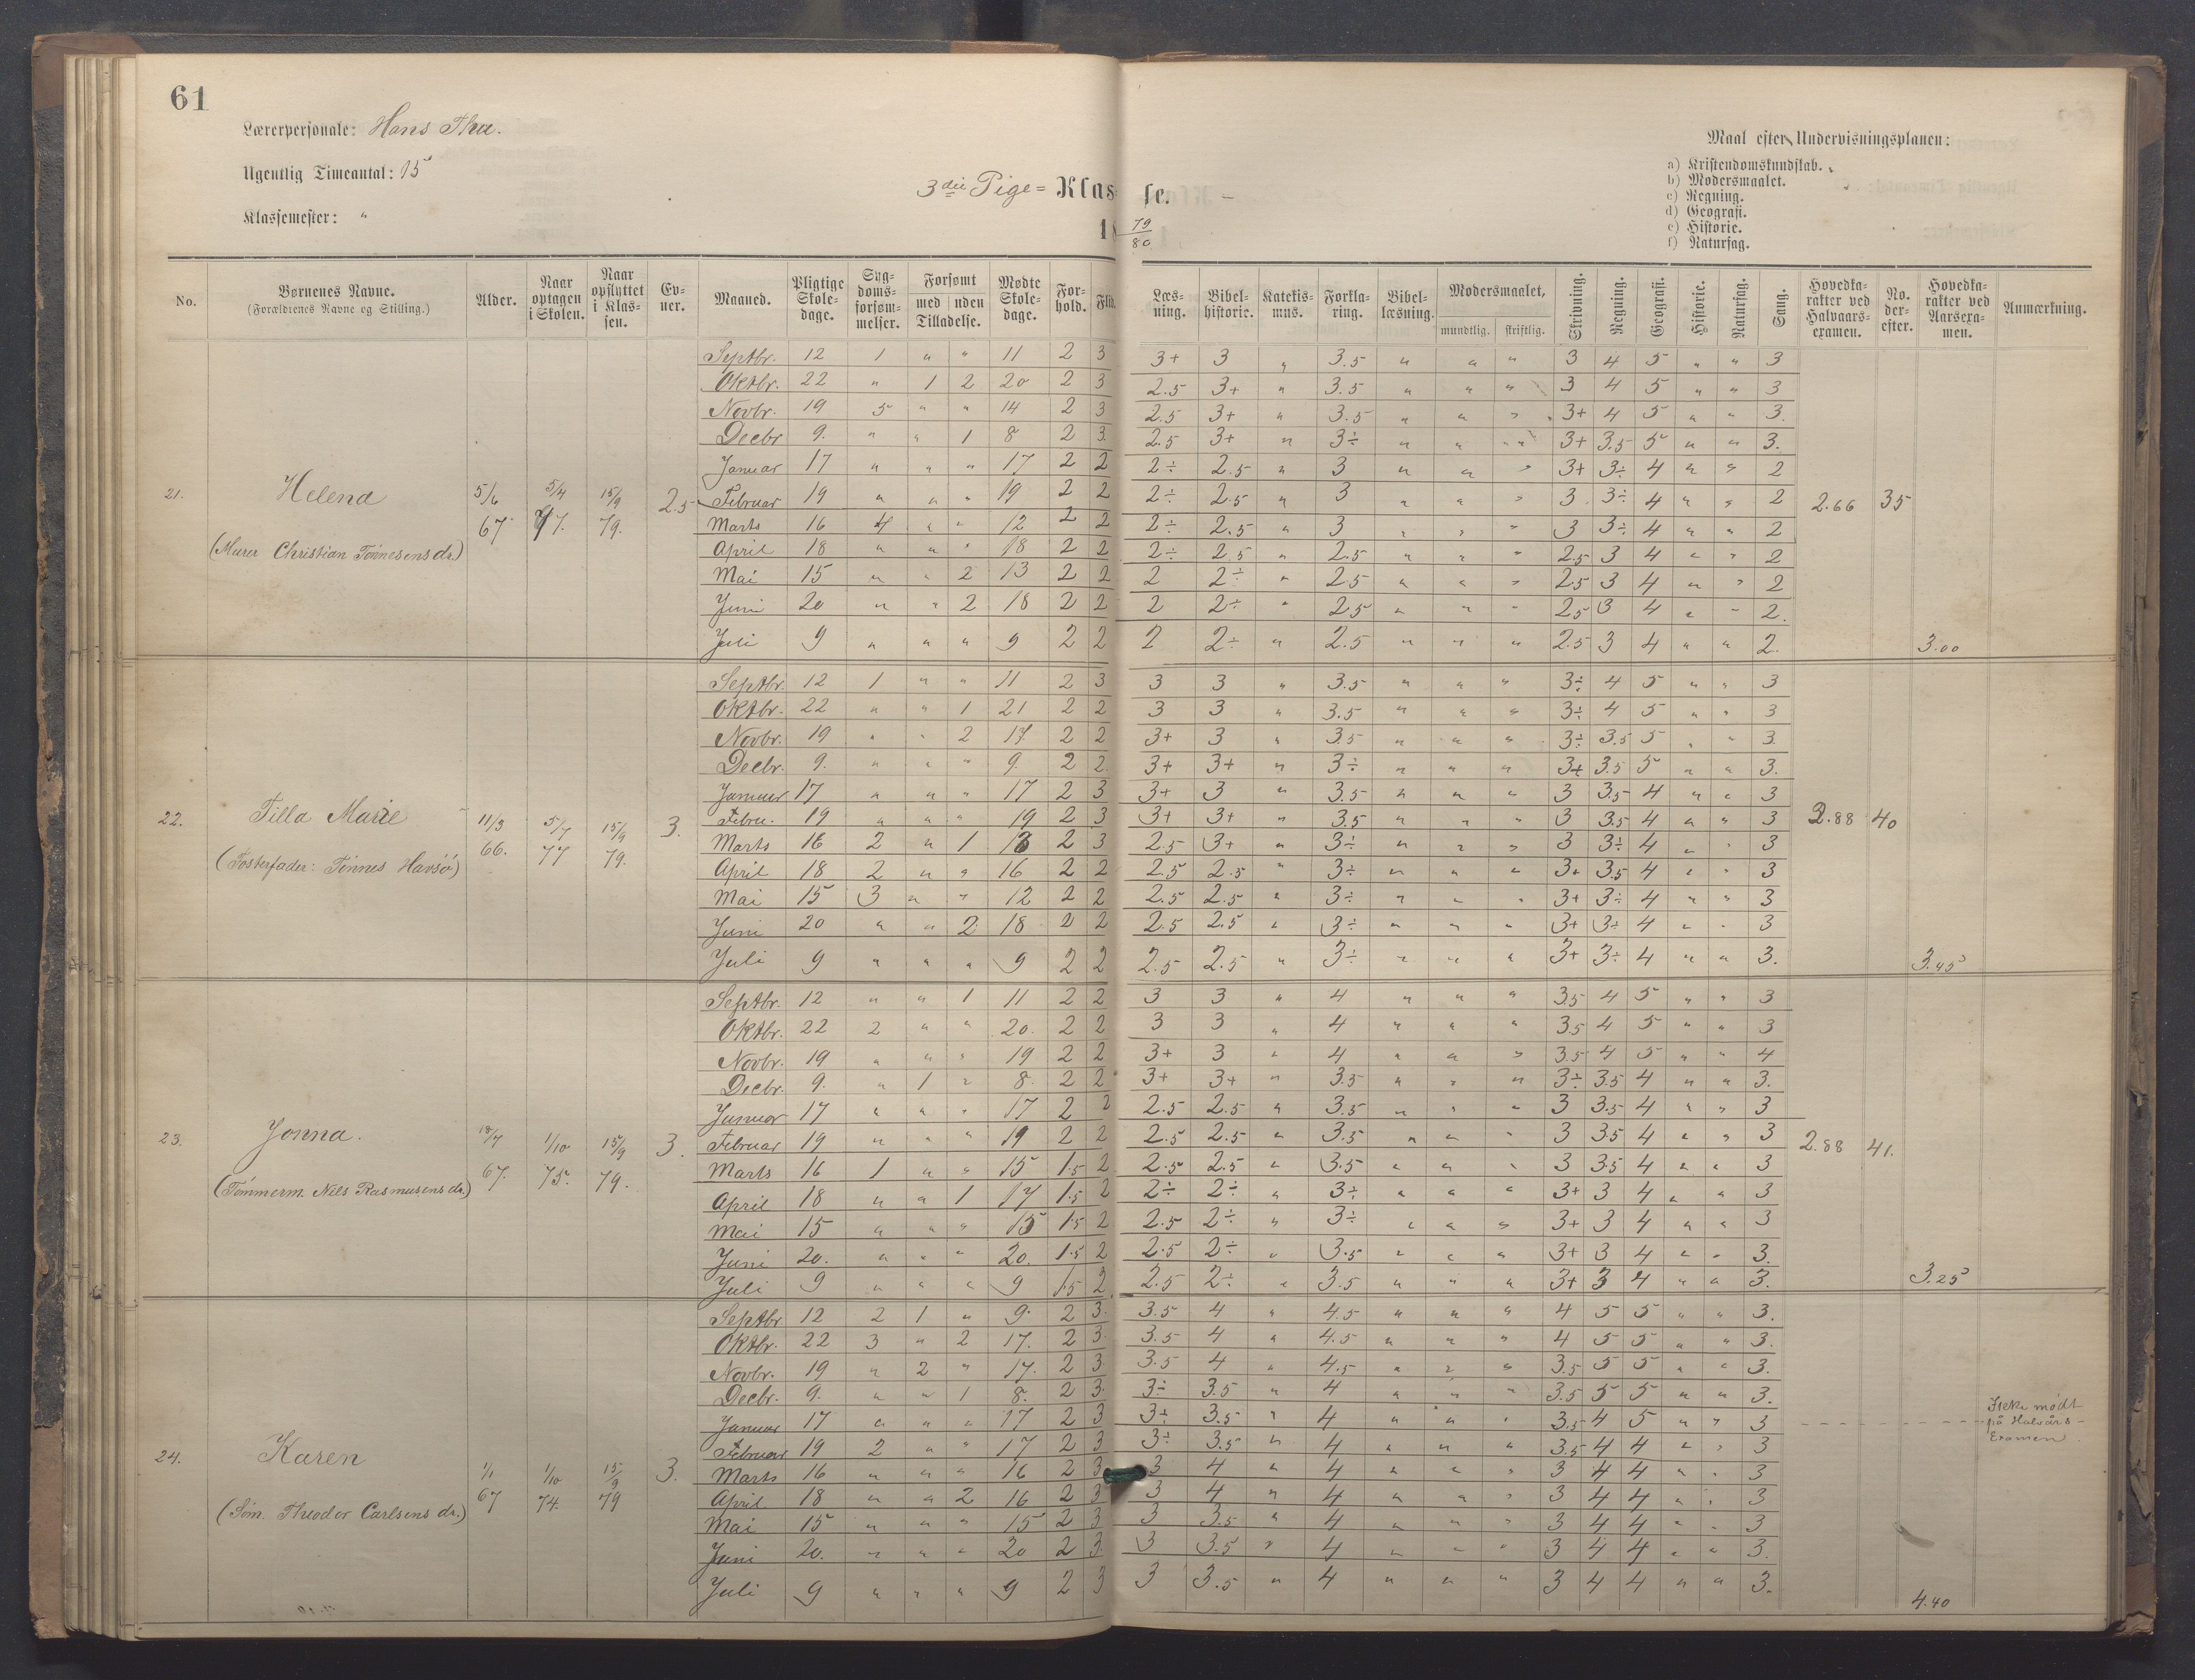 61
Lærerpersonale: Hans Thu.
Ugentlig Timeantal: 15
Klassemester: "
3die Pige= Klasse.
18 79/80
Maal efter Undervisningsplanen:
a) Kristendomskundskab.
b) Modersmaalet.
c) Regning.
d) Geografi.
e) Historie.
f) Naturfag.
No. | Børnenes Navne. (Forældrenes Navne og Stilling.) | Alder. | Naar optagen i Skolen. | Naar opflyttet i Klassen. | Evner. | Maaned. | Pligtige Skoledage. | Sygdomsforsømmelser. | Forsømt med Tilladelse. | uden Tilladelse. | Mødte Skoledage. | Forhold. | Flid. | Læsning. | Bibelhistorie. | Katekismus. | Forklaring. | Bibellæsning. | Modersmaalet, mundtlig. | skriftlig. | Skrivning. | Regning. | Geografi. | Historie. | Naturfag. | Sang. | Hovedkarakter ved Halvaarsexamen. | No. derefter. | Hovedkarakter ved Aarsexamen. | Anmærkning.
21. Helena (Murer Christian Tønnesens dr.) 5/6 67 | 5/4 77. | 15/9 79. | 2.5 | 2.66 | 35 | 3.00
Septbr. 12 1 " " 11 2 3 3+ 3 " 3.5 " " " 3 4 5 " " 3
Oktbr. 22 " 1 2 20 2 3 2.5 3+ " 3.5 " " " 3 4 5 " " 3
Novbr. 19 5 " " 14 2 3 2.5 3+ " 3.5 " " " 3+ 4 5 " " 3.
Decbr 9. " " 1 8 2 3. 2.5 3+ " 3÷ " " " 3+ 3.5 5 " " 3.
Januar 17 " " " 17 2 2 2÷ 2.5 " 3 " " " 3+ 3÷ 4 " " 2
Februar 19 " " " 19 2 2 2÷ 2.5 " 3 " " " 3 3÷ 4 " " 2
Marts 16 4 " " 12 2 2 2÷ 2.5 " 3 " " " 3 3÷ 4 " " 2
April 18 " " " 18 2 2 2÷ 2.5 " 2.5 " " " 2.5 3 4 " " 2
Mai 15 " " 2 13 2 2 2 2÷ " 2.5 " " " 2.5 3 4 " " 2
Juni 20 " " 2 18 2 2 2 2÷ " 2.5 " " " 2.5 3 4 " " 2.
Juli 9 " " " 9 2 2 2 2÷ " 2.5 " " " 2.5 3 4 " " 2.
22. Tilla Marie (Fosterfader: Tønnes Havsø) 11/3 66. | 5/7 77 | 15/9 79. | 3. | 2.88 | 40 | 3.45
Septbr. 12 1 " " 11 2 3 3 3 " 3.5 " " " 3÷ 4 5 " " 3
Oktbr. 22 " " 1 21 2 2 3 3 " 3.5 " " " 3÷ 4 5 " " 3
Novbr. 19 " " 2 17 2 2 3+ 3 " 3.5 " " " 3÷ 3.5 5 " " 3.
Decbr. 9. " " " 9. 2 2. 3+ 3+ " 3÷ " " " 3+ 3.5 5 " " 3.
Januar 17 " " " 17 2 3 3+ 3 " 3.5 " " " 3 3.5 4 " " 3
Febru. 19 " " " 19 2 3 3+ 3+ " 3.5 " " " 3 3.5 4 " " 3
Marts 16 2 " 1 13 2 3 2.5 3+ " 3÷ " " " 3 3÷ 4 " " 3
April 18 2 " " 16 2 2 2.5 2.5 " 3÷ " " " 3+ 3.5 4 " " 3
Mai 15 3 " " 12 2 2 2.5 2.5 " 3÷ " " " 3+ 3÷ 4 " " 3
Juni 20 " " 2 18 2 2 2.5 2.5 " 3÷ " " " 3+ 3÷ 4 " " 3
Juli 9 " " " 9 2 2 2.5 2.5 " 3÷ " " " 3+ 3÷ 4 " " 3.
23. Jonna. (Tømmerm. Nils Rasmusens dr.) 18/7 67. | 1/10 75. | 15/9 79. | 3. | 2.88 | 41. | 3.25
Septbr. 12 " " 1 11 2 2 3 3 " 4 " " " 3.5 4 5 " " 3
Oktbr. 22 2 " " 20. 2 2 3 3 " 4 " " " 3.5 4 5 " " 3
Novbr. 19 " " " 19 2 2 3+ 3 " 4 " " " 3.5 4 5 " " 4
Decbr. 9. " 1 " 8. 2 2 3+ 3+ " 3.5 " " " 3÷ 3.5 4 " " 3.
Januar 17 " " " 17 2 2 2.5 2.5 " 3.5 " " " 3 3.5 4 " " 3
Februar 19 " " " 19 2 2 2.5 2.5 " 3.5 " " " 3 3.5 4 " " 3
Marts 16 1 " " 15 1.5 2 2.5 2.5 " 3.5 " " " 3 3.5 4 " " 3
April 18 " " 1 17 1.5 2 2÷ 2÷ " 3÷ " " " 3+ 3 4 " " 3
Mai 15 " " " 15 1.5 2 2.5 2÷ " 3÷ " " " 3+ 3 4 " " 3
Juni 20. " " " 20. 1.5 2 2.5 2÷ " 3.5 " " " 3+ 3 4 " " 3.
Juli 9 " " " 9 1.5 2 2.5 2÷ " 3.5 " " " 3+ 3 4 " " 3.
24. Karen (Søm. Theodor Carlsens dr.) 1/1 67 | 1/10 74. | 15/9 79 | 3. | 4.40 | Ikke mødt på Halvårs-Examen.
Septbr 12 2 1 " 9. 2 3. 3.5 4 " 4.5 " " " 4 5 5 " " 3.
Oktbr. 22 3 " 2 17. 2 3. 3.5 4 " 4.5 " " " 4 5 5 " " 3.
Novbr. 19 " 2 " 17. 2 3. 3.5 4 " 4.5 " " " 3.5 5 5 " " 3.
Decbr. 9. " " 1 8. 2 3. 3÷ 3.5 " 4 " " " 3.5 5 5 " " 3.
Januar 17 " " " 17 2 3 3÷ 3.5 " 4 " " " 3.5 4 5 " " 3
Februar 19 2 " " 17 2 3 3÷ 3.5 " 4 " " " 3.5 4 4 " " 3
Marts 16 " " " 16 2 3 3 4 " 4 " " " 3 4 4 " " 3
April 18 " " 2 16 2 3 3 4 " 4 " " " 3 4 4 " " 3
Mai 15 " " " 15 2 3 3 3.5 " 4 " " " 3 4 4 " " 3
Juni 20. " " " 20 2 3. 3 3.5 " 4 " " " 3 4 4 " " 3.
Juli 9 " " " 9 2 3 3 3.5 " 4 " " " 3 4 4 " " 3.